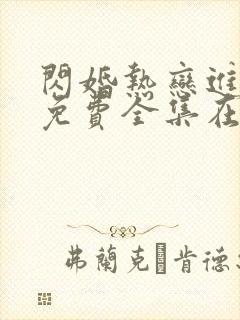 閃婚熱戀進
免費全集在
弗蘭克·肯德